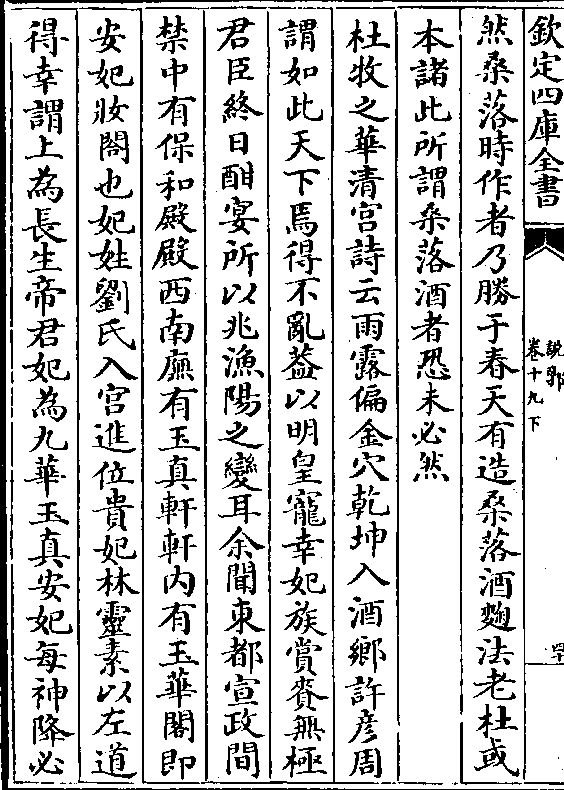 欽定四庫全書
說郛
卷十九下
四十
然桑落時作者乃勝于春天有造桑落酒麴法老杜或
本諸此所謂桑落酒者恐未必然
杜牧之華清宫詩云雨露偏金穴乾坤入酒鄉許彦周
謂如此天下焉得不亂葢以明皇寵幸妃族賞賚無極
君臣終日酣宴所以兆漁陽之變耳余聞東都宣政間
禁中有保和殿殿西南廡有玉真軒軒内有玉華閣即
安妃妝閣也妃姓劉氏入宫進位貴妃林靈素以左道
得幸謂上為長生帝君妃為九華玉真安妃每神降必